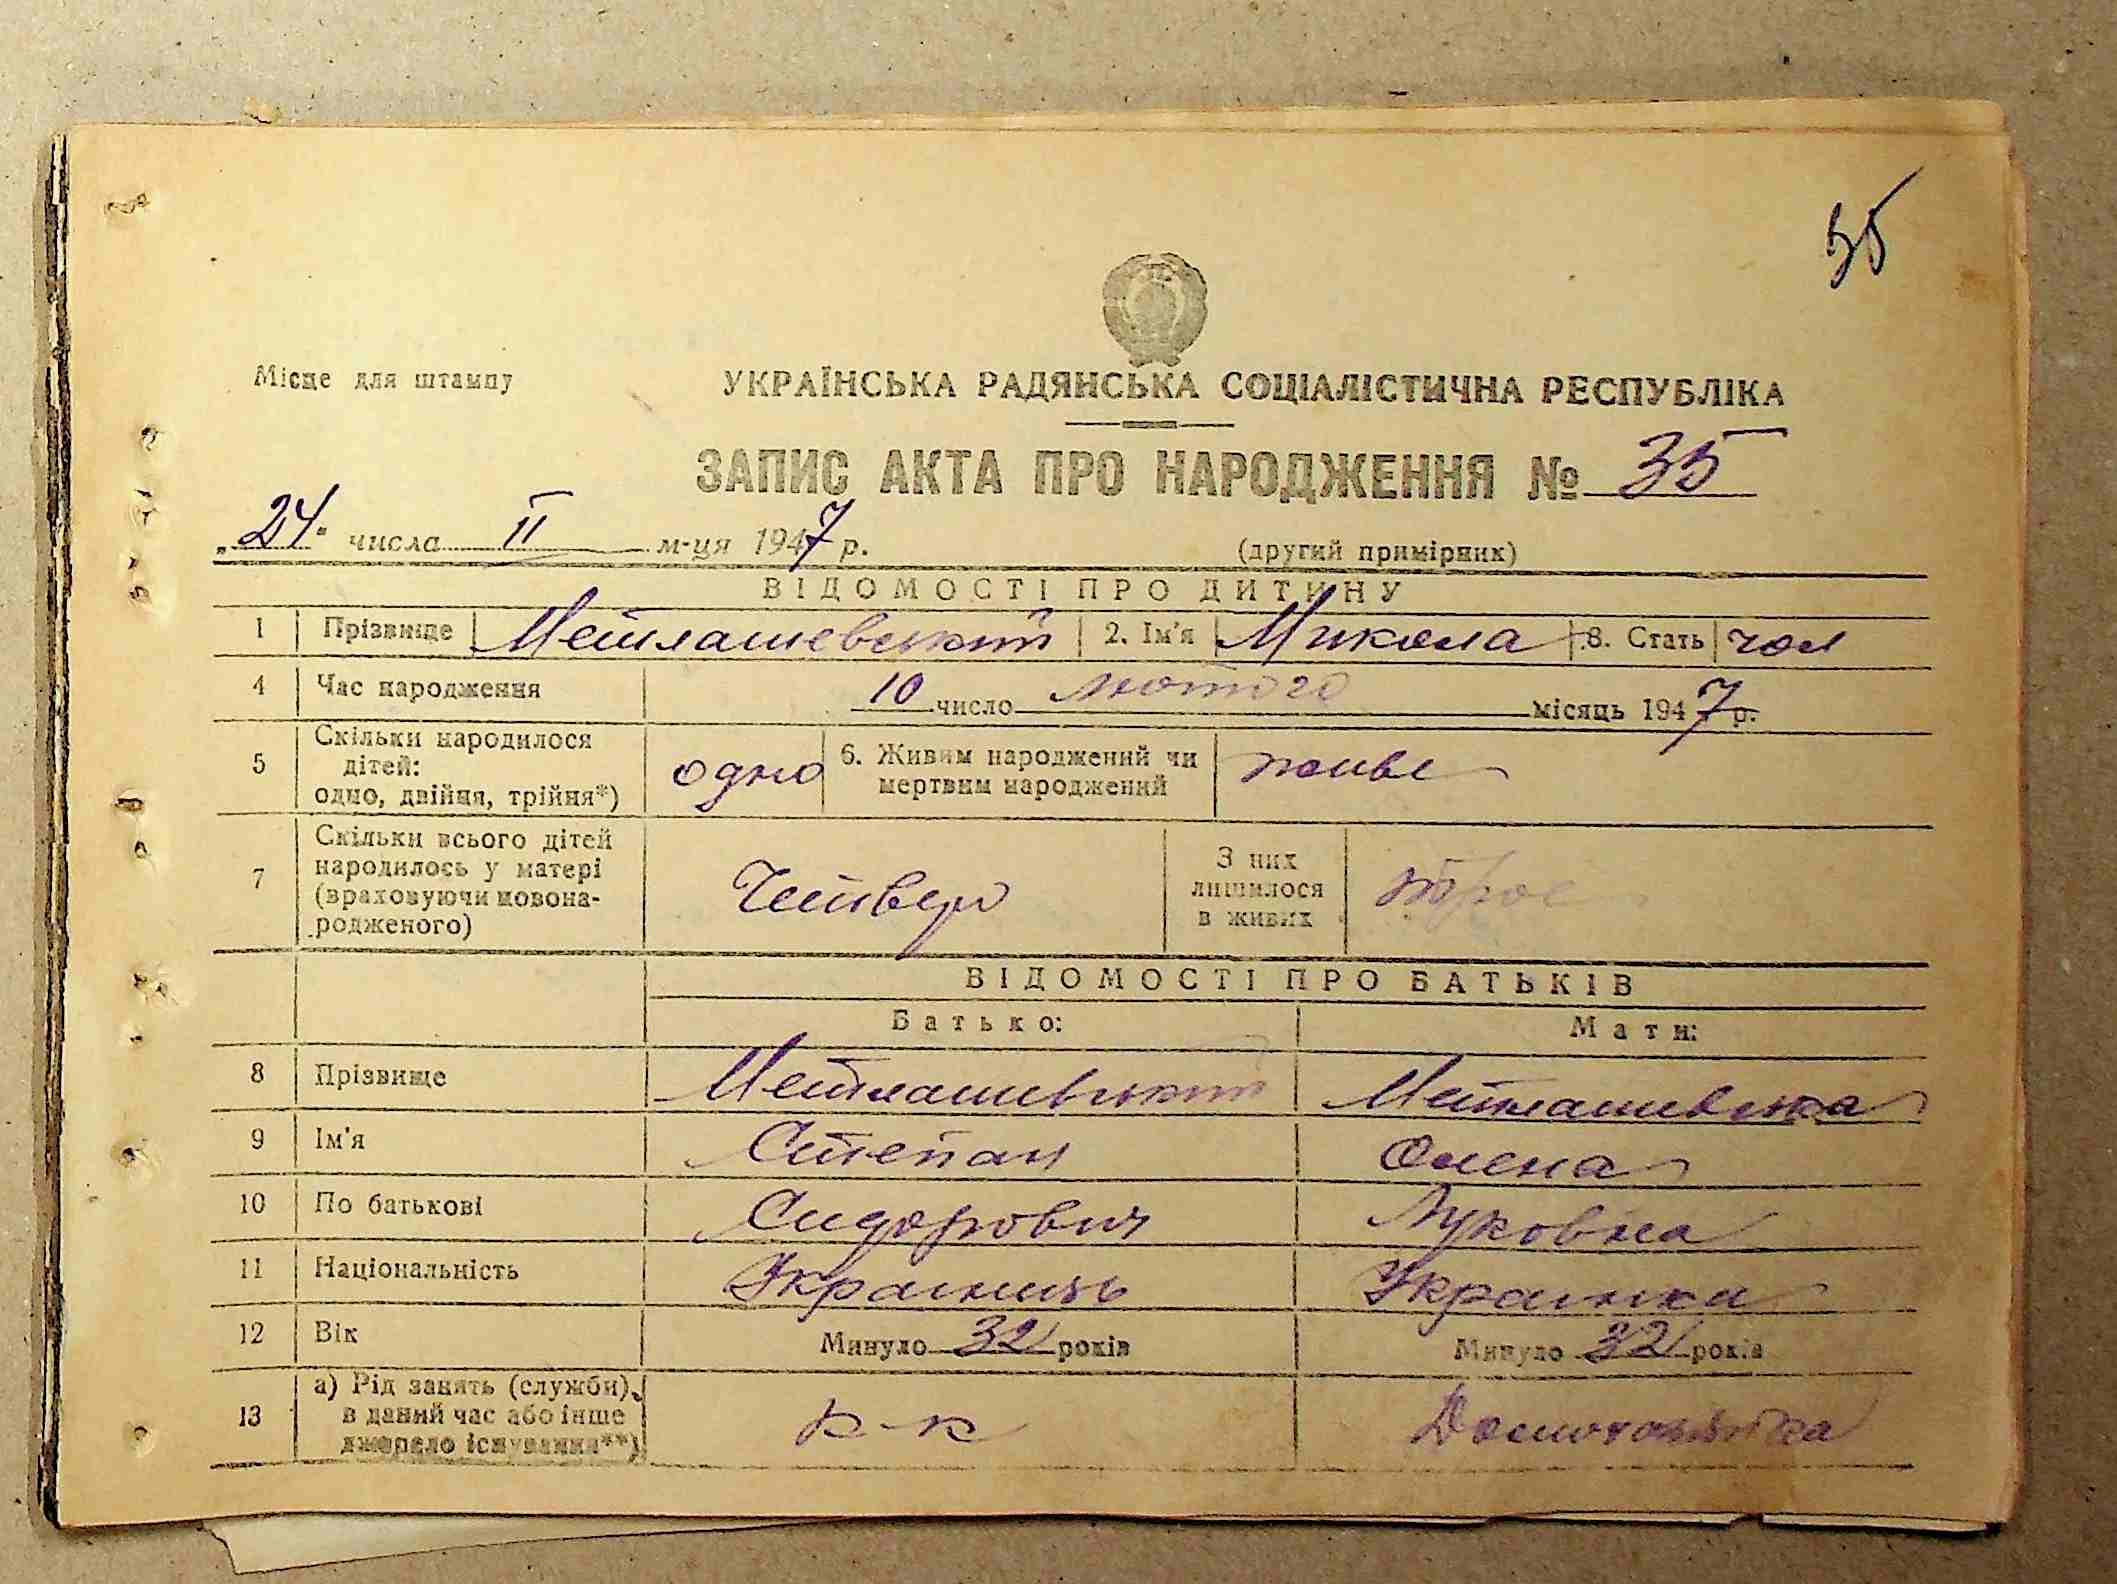 35
Місце для штампу
УКРАЇНСЬКА РАДЯНСЬКА СОЦІАЛІСТИЧНА РЕСПУБЛІКА
ЗАПИС АКТА ПРО НАРОДЖЕННЯ № 35
„24" числа II м-ця 1947 р. (другий примірник)
ВІДОМОСТІ ПРО ДИТИНУ
1 Прізвище Метлашевський 2. Ім'я Микола 3. Стать чол
4 Час народження 10 число лютого місяць 1947 р.
5 Скільки народилося дітей: одно, двійня, трійня*) одно 6. Живим народжений чи мертвим народжений живе
7 Скільки всього дітей народилось у матері (враховуючи новонародженого) Четверо З них лишилося в живих трое
ВІДОМОСТІ ПРО БАТЬКІВ
Батько: Мати:
8 Прізвище Метлашевський Метлашевська
9 Ім'я Степан Олена
10 По батькові Сидорович Луковна
11 Національність Украинець Украинка
12 Вік Минуло 32 років Минуло 32 років
13 а) Рід занять (служби) в даний час або інше джерело існування**) к-к Домохазяйка